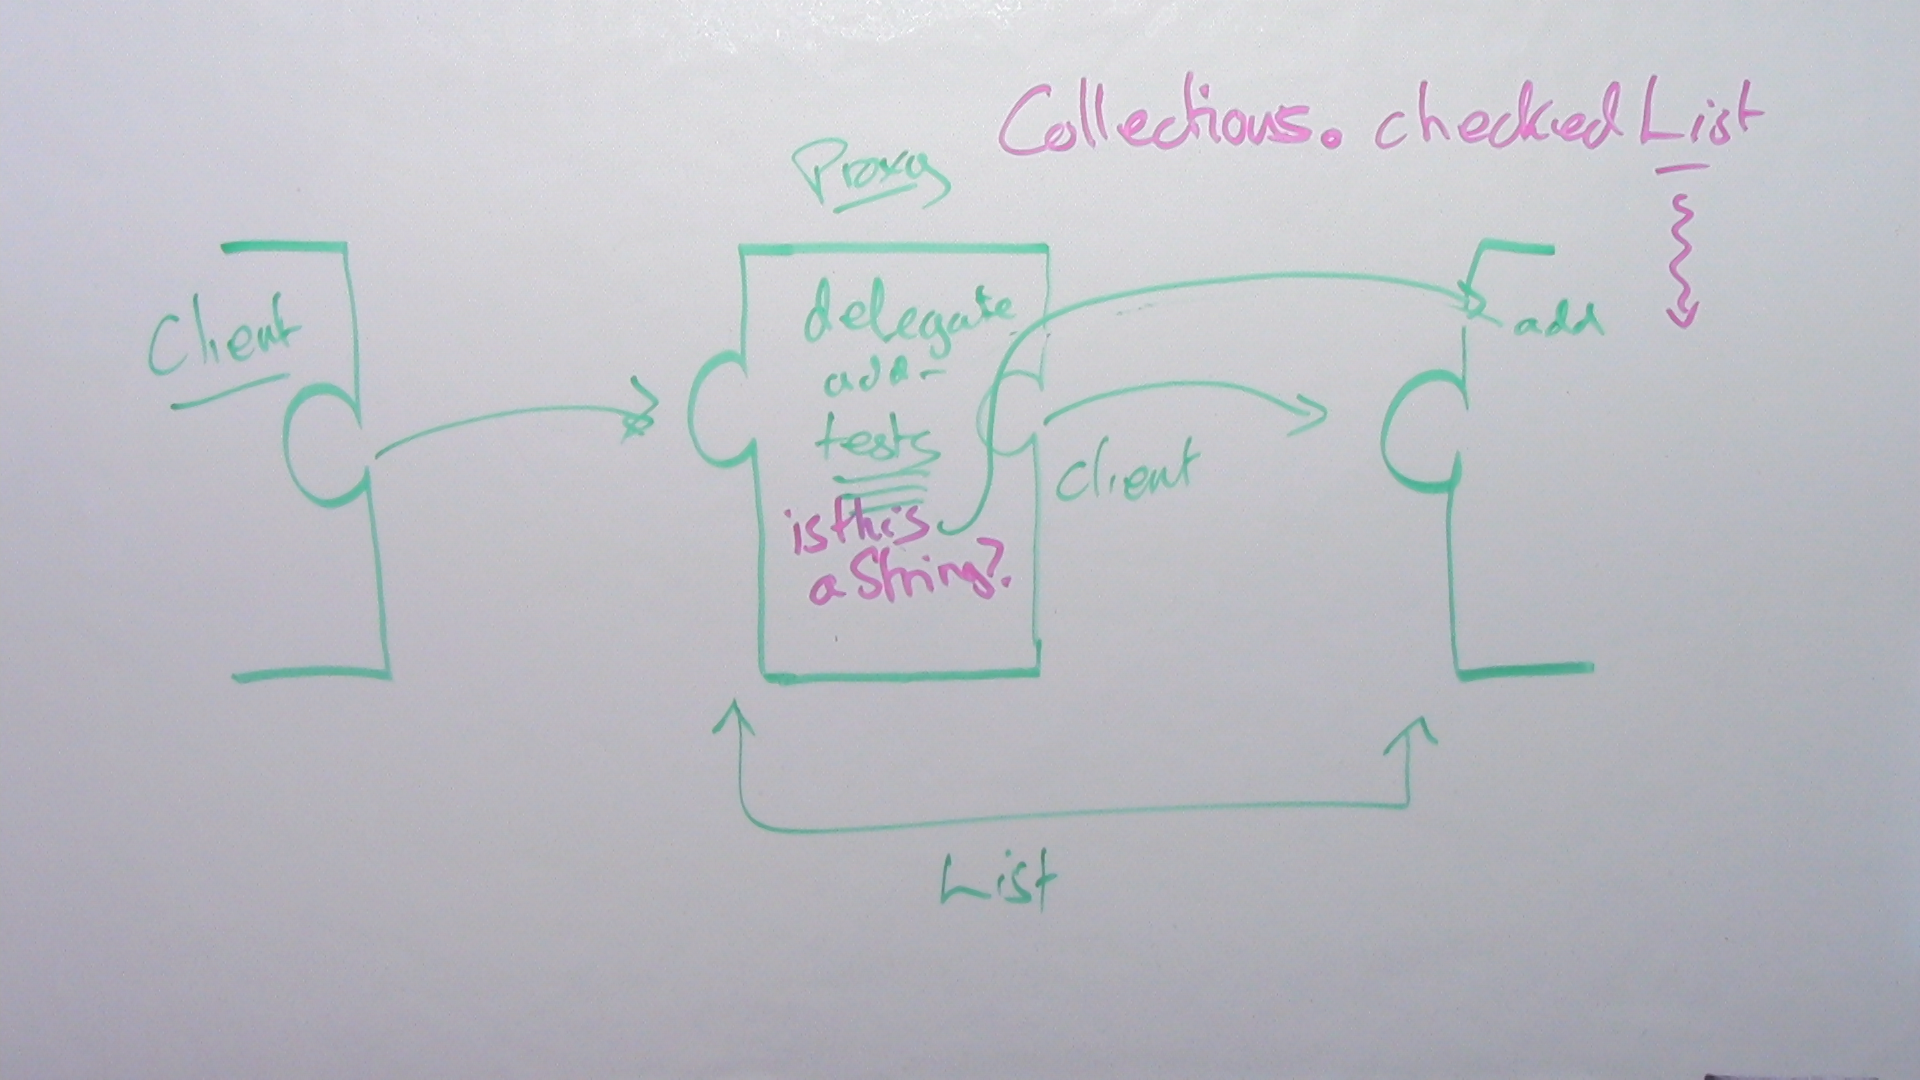 Collections.checkedList
Proxy
Client
delegate
add-
tests
is this
a String?
client
add
List